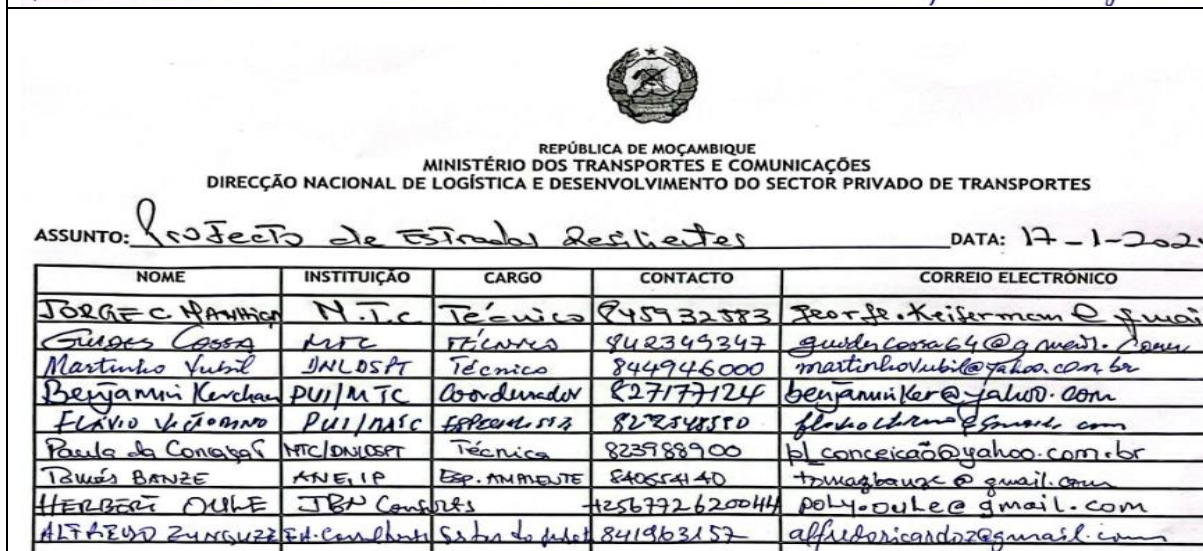 REPÚBLICA DE MOÇAMBIQUE
MINISTÉRIO DOS TRANSPORTES E COMUNICAÇÕES
DIRECÇÃO NACIONAL DE LOGÍSTICA E DESENVOLVIMENTO DO SECTOR PRIVADO DE TRANSPORTES
ASSUNTO: Projecto de Estradas Resilientes DATA: 17-1-202
NOME INSTITUIÇÃO CARGO CONTACTO CORREIO ELECTRÓNICO
JORGE C M.T.C Técnico 845932583
Cossa MTC TÉCNICO 842349347 guidercossa64@gmail.com
Martinho Vubil DNLDSPT Técnico 844946000 martinhovubil@yahoo.com.br
Benjamin PUI/MTC Coordenador 827177124 benjaminker@yahoo.com
FLÁVIO
Paula da Conceição MTC/DNLDSPT Técnica 823988900 pl_conceicão@yahoo.com.br
BANZE ANE, IP ESP. AMBIENTE 840654140 tomazbanze@gmail.com
HERBERT OULE JBN Consults +256772620044 poly.oule@gmail.com
ALFREDO 841963157 alfredoricardoz@gmail.com